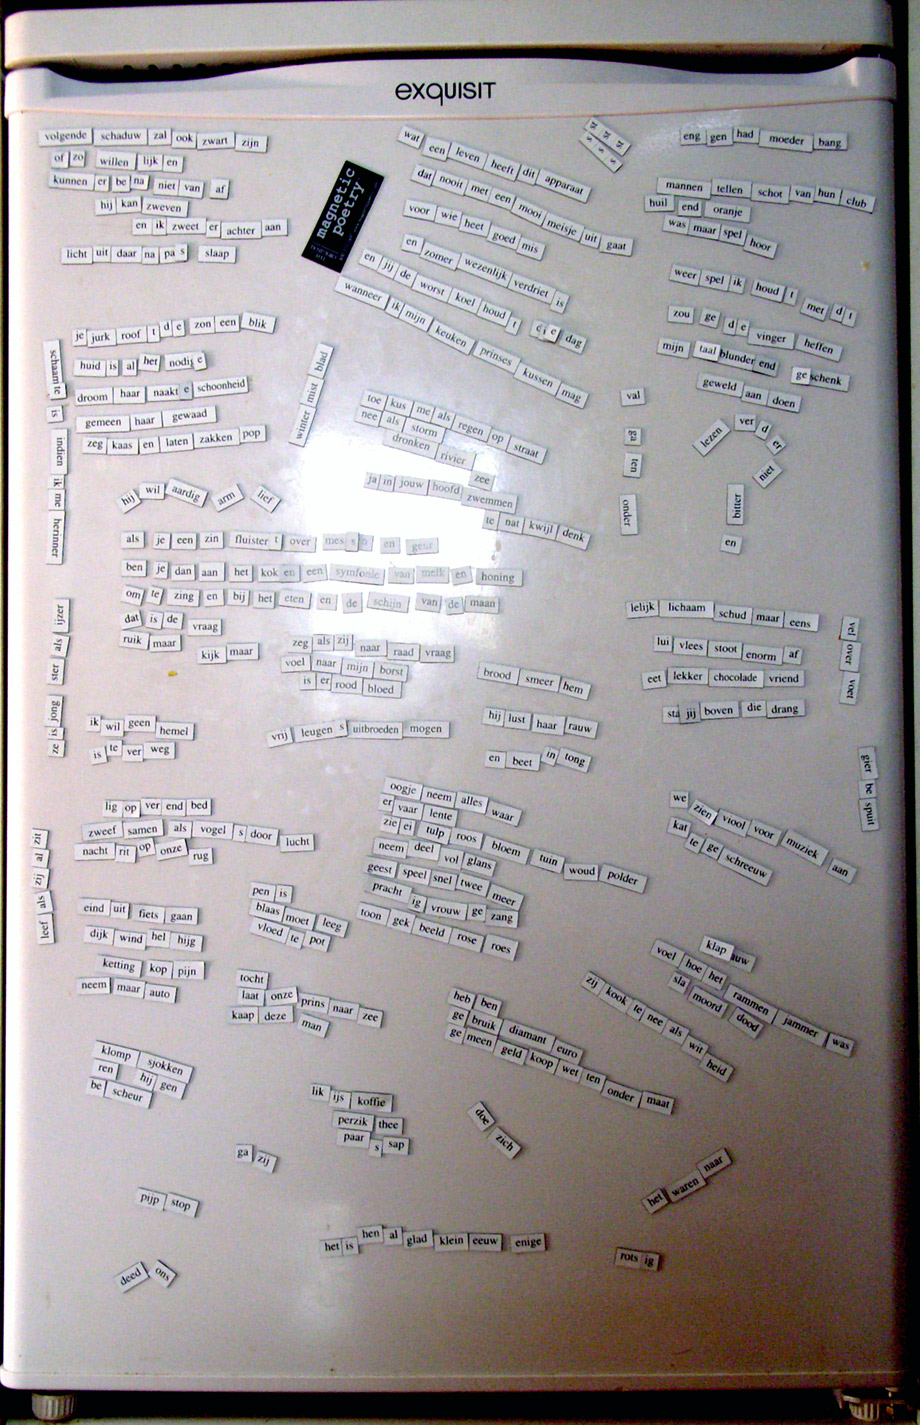 exquisit
volgende schaduw zal ook zwart zijn
of zo willen lijk en
kunnen er be na niet van af
hij kan zweven
en ik zweet er achter aan
licht uit daar na pa s slaap
magnetic
poetry
wat een leven heeft dit apparaat
dat nooit met een mooi meisje uit gaat
voor wie heet goed mis
en zomer wezenlijk verdriet is
en jij de worst koel houd t die dag
wanneer ik mijn keuken prinses kussen mag
st st st
s s s
eng gen had moeder bang
mannen tellen schot van hun club
huil end oranje
was maar spel hoor
weer spel ik houd t met d t
zou ge d e vinger heffen
mijn taal blunder end ge schenk
geweld aan doen
je jurk roof t d e zon een blik
huid is al het nodig e
droom haar naakt e schoonheid
gemeen haar gewaad
zeg kaas en laten zakken pop
schaam te is indien ik me herinner
winter mist blad
toe kus me als regen op straat
nee als storm
dronken rivier zee
ja in jouw hoofd zwemmen
te nat kwijl denk
val
ga
ten
onder
lezen ver d er
niet
bitter
en
hij wil aardig arm lief
als je een zin fluister t over mes s n en geur
ben je dan aan het kok en een symfonie van melk en honing
om te zing en bij het eten en de schijn van de maan
dat is de vraag
ruik maar
kijk maar
zeg als zij naar raad vraag
voel naar mijn borst
is er rood bloed
ze is jong ster als ijzer
ik wil geen hemel
is te ver weg
vrij leugen s uitbroeden mogen
brood smeer hem
hij lust haar rauw
en beet in tong
lelijk lichaam schud maar eens
lui vlees stoot enorm af
eet lekker chocolade vriend
sta jij boven die drang
vet over voer
gier be spuit
lig op ver end bed
zweef samen als vogel s door lucht
nacht rit op onze rug
leef als zij al zit
oogje neem alles waar
er vaar lente
zie ei tulp roos bloem tuin woud polder
neem deel vol glans
geest speel snel twee meer
pracht ig vrouw ge zang
toon gek beeld rose roes
we zien viool voor muziek aan
kat te ge schreeuw
eind uit fiets gaan
dijk wind hel hijg
ketting kop pijn
neem maar auto
pen is
blaas moet leeg
vloed te por
tocht
laat onze prins naar zee
kaap deze man
klap auw
voel hoe het rammen jammer was
sla moord dood
zij kook te nee als wit heid
heb ben
ge bruik diamant euro
ge meen geld koop wet ten onder maat
klomp sjokken
ren hij gen
be scheur
lik ijs koffie
perzik thee
paar s sap
doe zich
ga zij
pijp stop
het waren naar
het is hen al glad klein eeuw enige
rots ig
deed ons